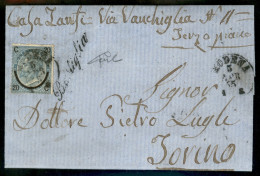 Casa Zanti Via Vanchiglia N° 11
Terzo piano
20
MODENA
Signor
Dottore Pietro Lugli
Torino